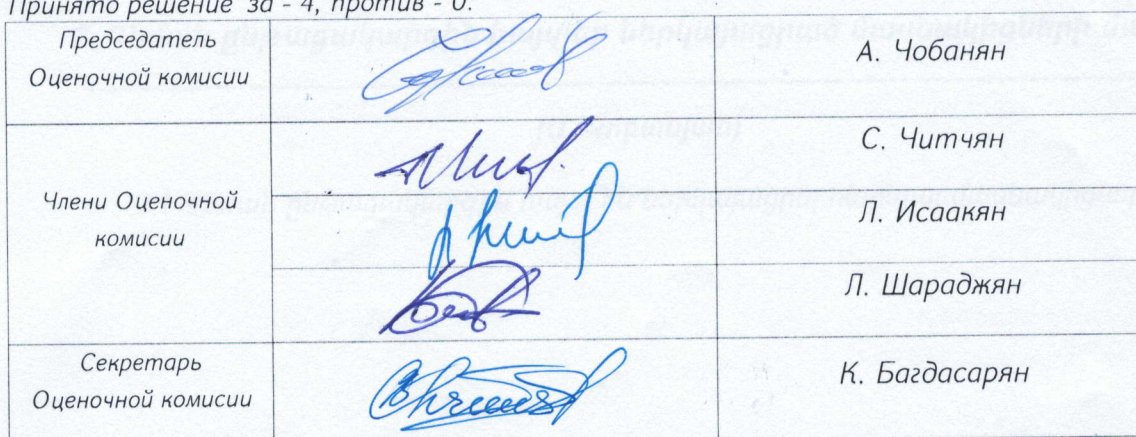 Принято решение за - 4, против - 0.
Председатель
Оценочной комисии
А. Чобанян
Члени Оценочной
комисии
С. Читчян
Л. Исаакян
Л. Шараджян
Секретарь
Оценочной комисии
К. Багдасарян